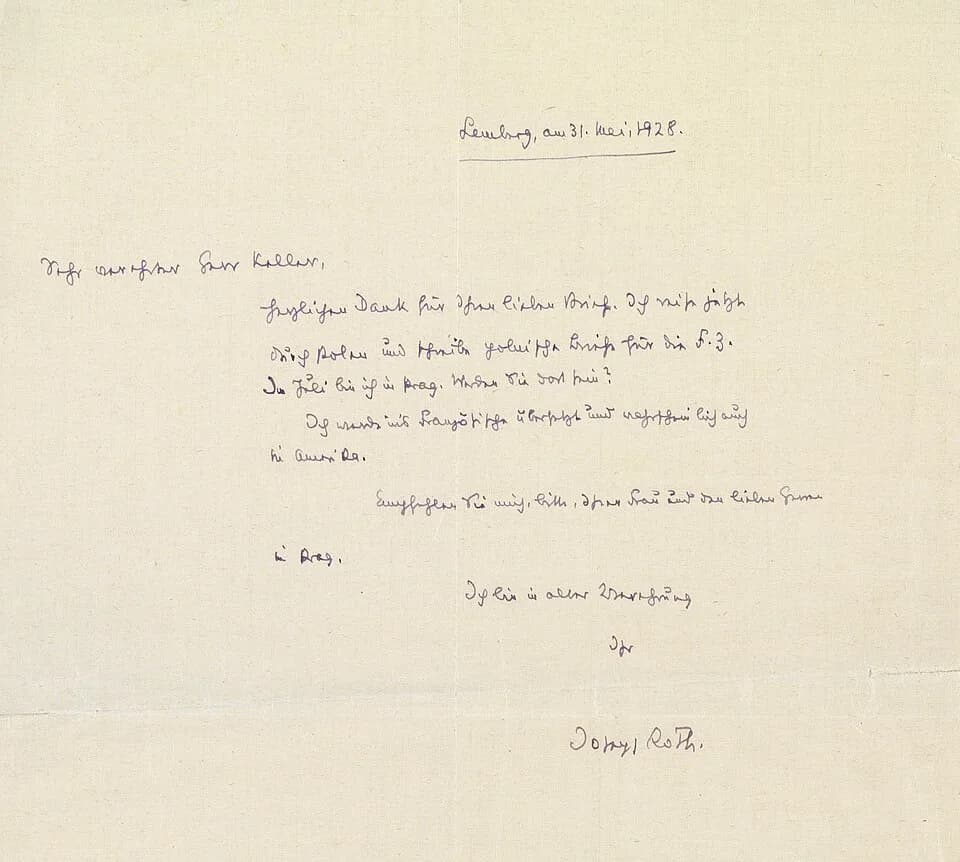 Lemberg, am 31. Mai, 1928.
Sehr verehrter Herr Keller,
herzlichen Dank für Ihren lieben Brief. Ich reise jetzt
durch Polen und schreibe polnische Briefe für die F. Z.
Im Juli bin ich in Prag. Werden Sie dort sein?
Ich werde ins Französische übersetzt und wahrscheinlich auch
in Amerika.
Empfehlen Sie mich, bitte, Ihrer Frau und den lieben
in Prag.
Ich bin in alter Verehrung
Ihr
Joseph Roth.